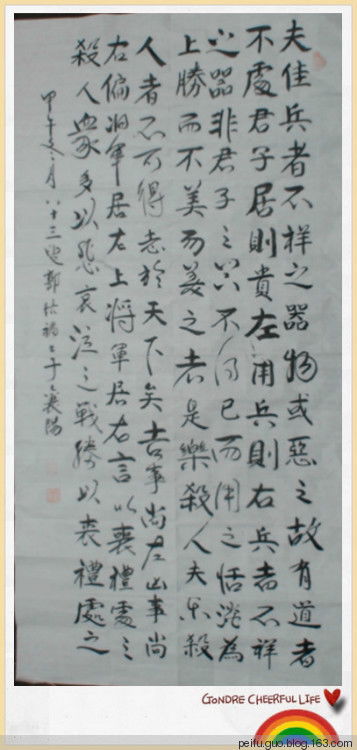 夫佳兵者不祥之器物或惡之故有道者
不處君子居則貴左用兵則右兵者不祥
之器非君子之器不得已而用之恬淡為
上勝而不美而美之者是樂殺人夫樂殺
人者不可得志於天下矣吉事尚左凶事尚
右偏將軍居左上將軍居右言以喪禮處之
殺人眾多以悲哀泣之戰勝以喪禮處之
甲午月八十三叟郭于襄陽
GONDRE CHEERFUL LIFE
peifu.guo.blog.163.com